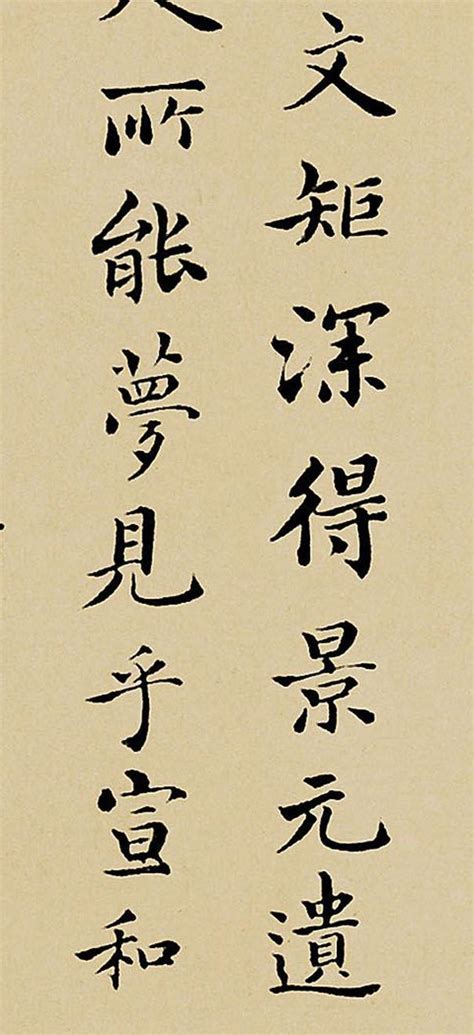 文矩深得景元遺
所能夢見乎宣和